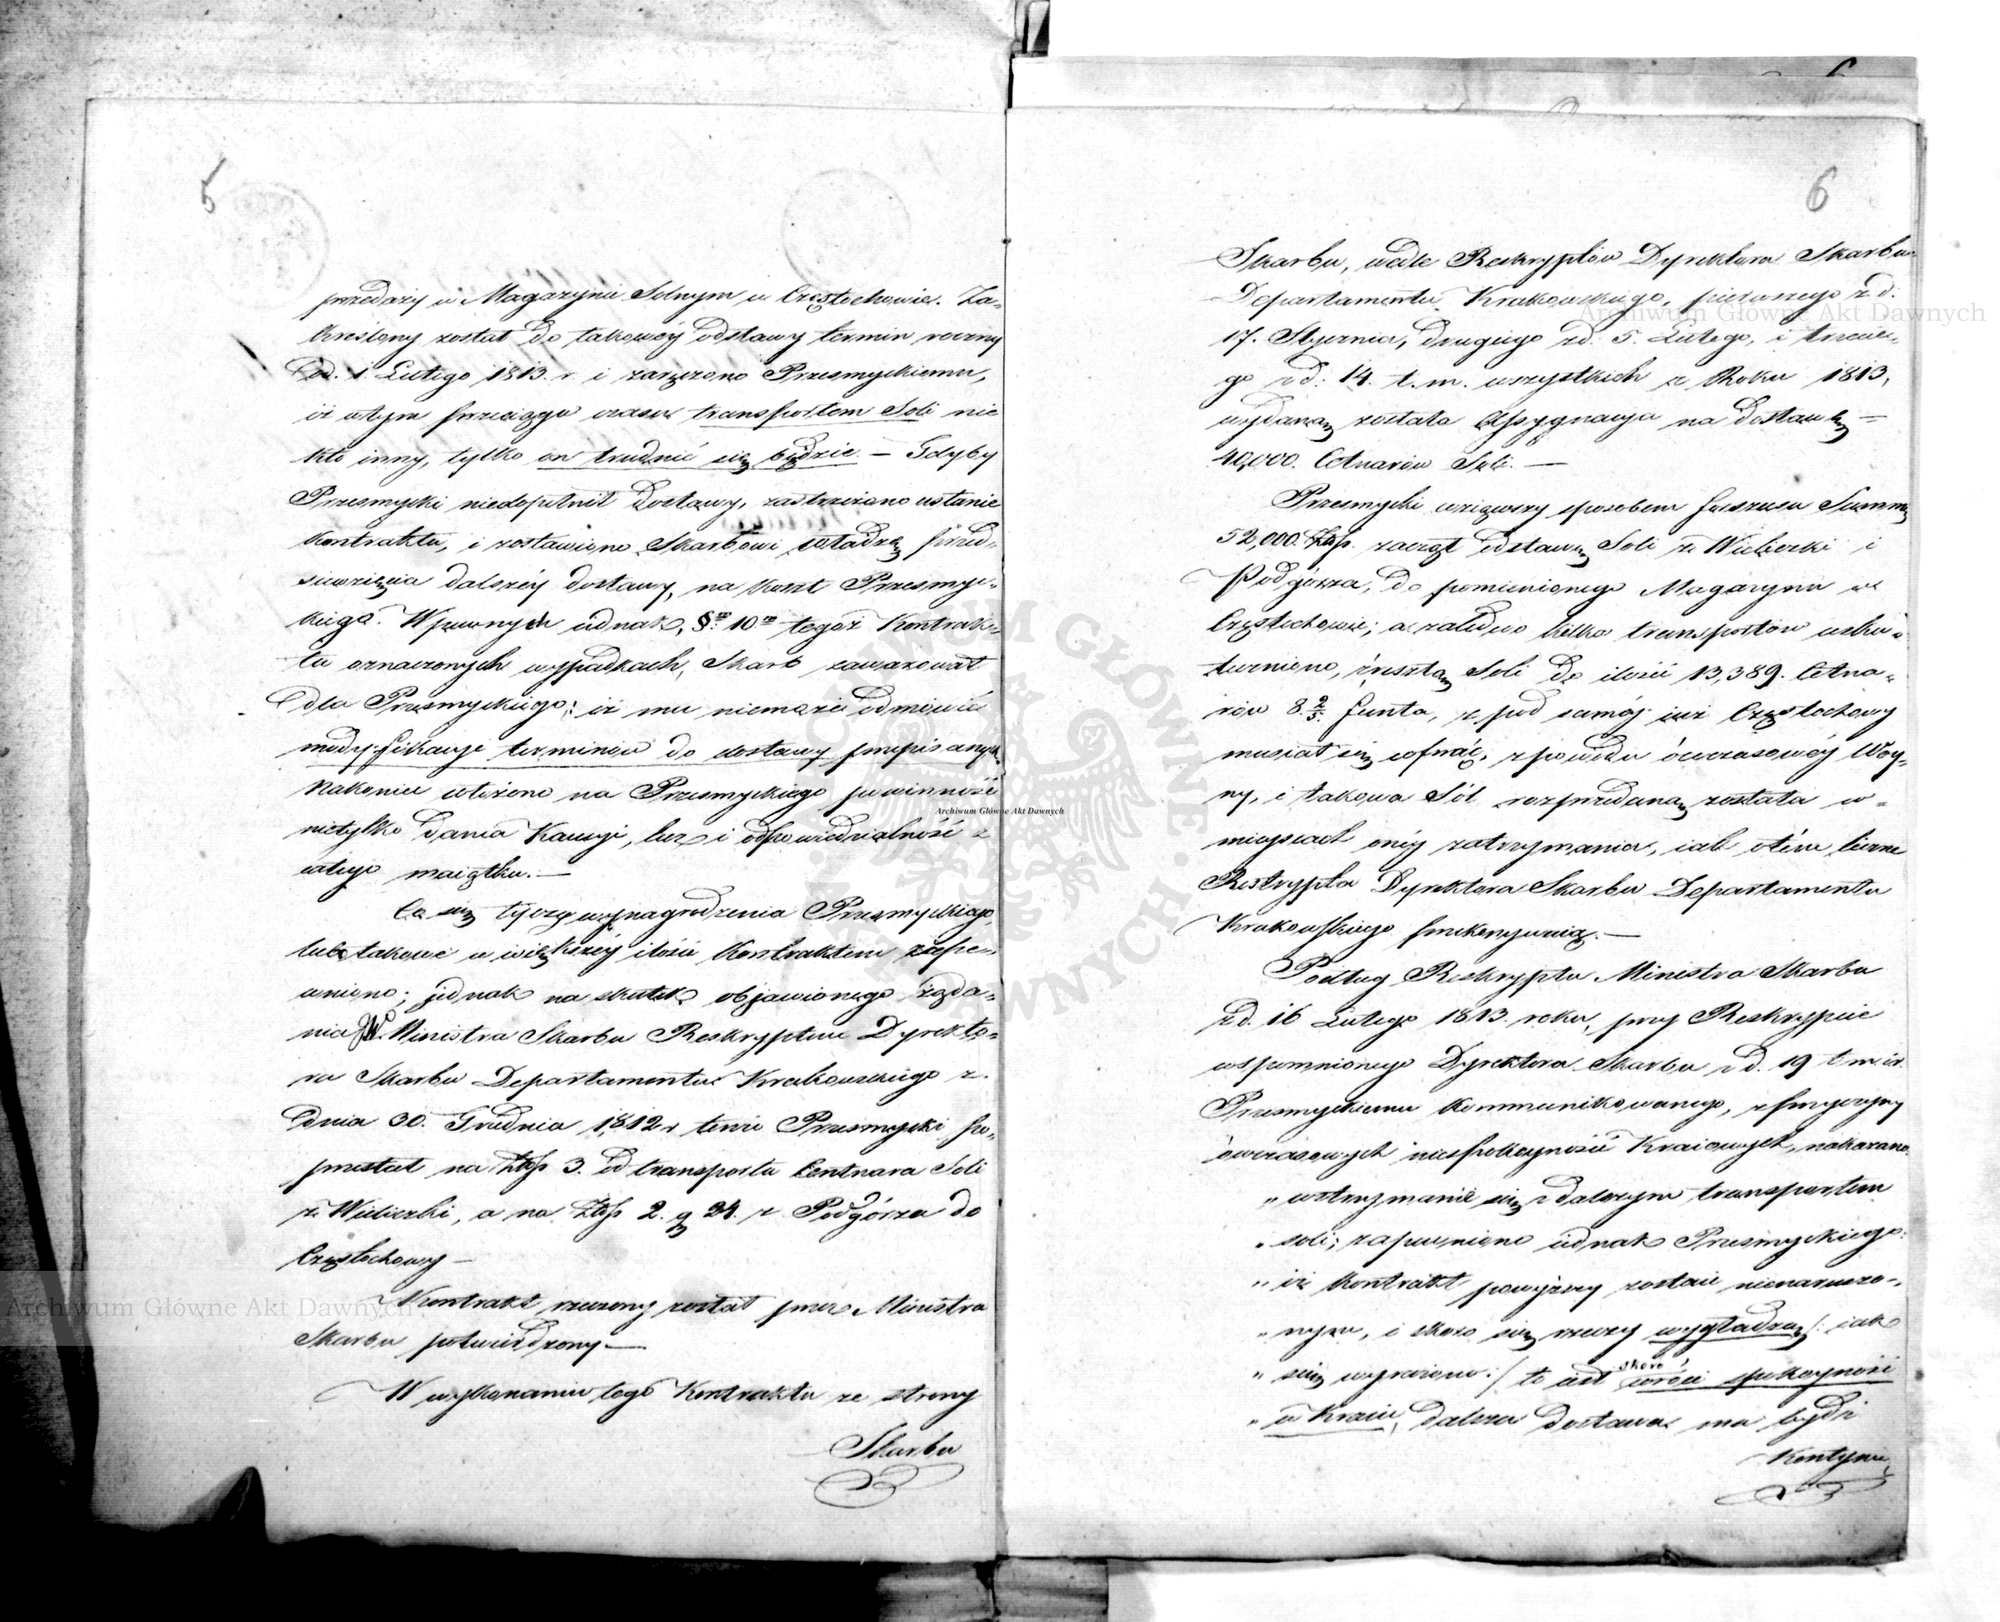 5
przedaży w Magazynie Solnym w Częstochowie. Za-
kreślony został do takowéy odstawy termin roczny
od 1. Lutego 1813. r. i zaręczono Przesmyckiemu,
iż w tym przeciągu czasu transportem Soli nie
kto inny, tylko on trudnić się będzie. — Gdyby
Przesmycki niedopełnił dostawy, zastrzeżono ustanie
kontraktu, i zostawiono Skarbowi władzę przed-
sięwzięcia dalszéy dostawy, na koszt Przesmyc-
kiego. W pewnych iednak, §em 10m tegoż Kontrak-
tu oznaczonych wypadkach, Skarb zawarował
dla Przesmyckiego: iż mu niemoże odmówić
modyfikacyi terminów do dostawy przepisanych
Nakoniec włożono na Przesmyckiego powinność
nietylko dania Kaucyi, lecz i odpowiedzialność z
całego maiątku. —
Co się tyczy wynagrodzenia Przesmyckiego,
lubo takowe w większéy ilości Kontraktem zape-
wniono; jednak na skutek objawionego żąda-
nia JW. Ministra Skarbu Reskryptem Dyrekto-
ra Skarbu Departamentu Krakowskiego z
dnia 30. Grudnia 1812 r tenże Przesmycki po-
przestał na Złtp 3. od transportu Centnara Soli
z Wieliczki, a na Złtp 2. g 24. z Podgórza do
Częstochowy —
Kontrakt rzeczony został przez Ministra
Skarbu potwierdzony. —
W wykonaniu tego Kontraktu ze strony
Skarbu
6
Skarbu, wedle Reskryptów Dyrektora Skarbu
Departamentu Krakowskiego, pierwszego z d.
17. Stycznia, drugiego z d. 5. Lutego, i trzecie-
go z d: 14. t. m. wszystkich z Roku 1813,
wydaną została Assygnacya na dostawę —
40,000. Cetnarów Soli. —
Przesmycki wziąwszy sposobem forszusu Summę
52,000. Złtp. zaczął odstawę Soli z Wieliczki i
Podgórza, do pomienionego Magazynu w
Częstochowie; a zaledwo kilka transportów usku-
teczniono, resztę Soli do ilości 13,389. Cetna-
rów 8. 2/5. funta, z pod saméj iuż Częstochowy
musiał się cofnąć, z powodu ówczasowéy Woy-
ny, i takowa Sól rozprzedaną została w
mieyscach onéy zatrzymania, iak o tém liczne
Reskrypta Dyrektora Skarbu Departamentu
Krakowskiego przekonywaią. —
Podług Reskryptu Ministra Skarbu
z d. 16 Lutego 1813. roku, przy Reskrypcie
wspomnionego Dyrektora Skarbu z d. 19 t m i r.
Przesmyckiemu kommunikowanego, z przyczyny
ówczasowych niespokoyności Kraiowych, nakazano
„ wstrzymanie się z dalszym transportem
„ soli; zapewniono iednak Przesmyckiego:
„ iż kontrakt powyższy zostaie nienaruszo-
„ nym, i skoro się rzeczy wygładzą /: iak
„ się wyrażono :/ to iest skoro wróci spokoyność
„ w Kraiu, dalsza dostawa ma bydź
Kontynu-
Archiwum Główne Akt Dawnych
Archiwum Główne Akt Dawnych
Archiwum Główne Akt Dawnych
ARCHIWUM GŁÓWNE AKT DAWNYCH